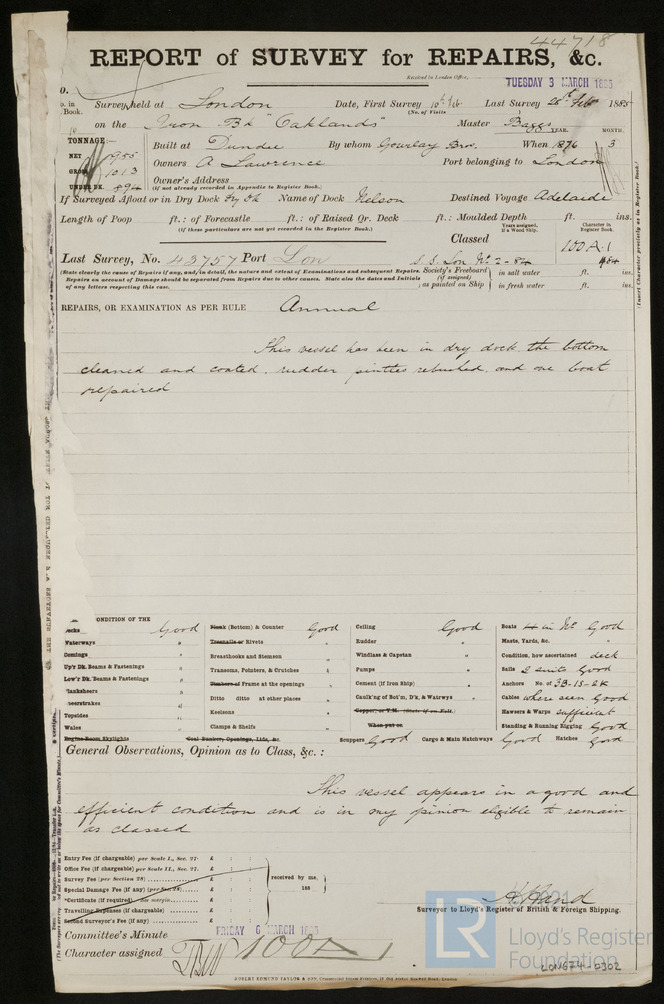 44718
REPORT of SURVEY for REPAIRS, &c.
Received in London Office,
TUESDAY 3 MARCH 1885
o. in Book. Survey held at London Date, First Survey 10th Feb Last Survey 28th Feb 1885
(No. of Visits )
on the Iron Bk "Oaklands" Master Baggs
TONNAGE:— Built at Dundee By whom Gourlay Bro. When 1876 YEAR. 3 MONTH.
NET 955 Owners A Lawrence Port belonging to London
GROSS 1013 Owner's Address
UNDER DK. 894 (if not already recorded in Appendix to Register Book.)
If Surveyed Afloat or in Dry Dock Dry Dk Name of Dock Nelson Destined Voyage Adelaide
Length of Poop ft.: of Forecastle ft.: of Raised Qr. Deck ft.: Moulded Depth ft. ins.
(if these particulars are not yet recorded in the Register Book.)
Years assigned, if a Wood Ship. Character in Register Book.
Classed 100 A.1
Last Survey, No. 43757 Port Lon S.S. Lon No. 2-84 9,84
(State clearly the cause of Repairs if any, and, in detail, the nature and extent of Examinations and subsequent Repairs.
Repairs on account of Damage should be separated from Repairs due to other causes. State also the dates and Initials
of any letters respecting this case.)
Society's Freeboard (if assigned) as painted on Ship in salt water ft. ins.
in fresh water ft. ins.
(Insert Character precisely as in Register Book.)
REPAIRS, OR EXAMINATION AS PER RULE Annual
This vessel has been in dry dock, the bottom
cleaned and coated, rudder pintles rebushed, and one boat
repaired
CONDITION OF THE
Decks Good
Waterways "
Comings "
Up'r Dk. Beams & Fastenings "
Low'r Dk. Beams & Fastenings "
Planksheers "
Sheerstrakes "
Topsides "
Wales "
Engine Room Skylights
Plank (Bottom) & Counter Good
Treenails or Rivets "
Breasthooks and Stemson "
Transoms, Pointers, & Crutches "
Timbers of Frame at the openings "
Ditto ditto at other places "
Keelsons "
Clamps & Shelfs "
Coal Bunker, Openings, Lids, &c.
Ceiling Good
Rudder "
Windlass & Capstan "
Pumps "
Cement (if Iron Ship) "
Caulk'ng of Bot'm, D'k, & Watrwys "
Copper, or Y.M. (State if on Felt.)
When put on
Scuppers Good Cargo & Main Hatchways Good Hatches Good
Boats 4 in No. Good
Masts, Yards, &c. "
Condition, how ascertained deck
Sails 2 suits Good
Anchors No. of 3B-1S-2K
Cables where seen Good
Hawsers & Warps sufficient
Standing & Running Rigging Good
General Observations, Opinion as to Class, &c.:
This vessel appears in a good and
efficient condition and is in my opinion eligible to remain
as classed
Entry Fee (if chargeable) per Scale I., Sec. 27. £ : :
Office Fee (if chargeable) per Scale II., Sec. 27. £ : :
Survey Fee (per Section 28) £ : :
Special Damage Fee (if any) (per Sec. 28) £ : :
*Certificate (if required) as margin £ : :
Travelling Expenses (if chargeable) £ : :
Second Surveyor's Fee (if any) £ : :
received by me,
188
Surveyor to Lloyd's Register of British & Foreign Shipping.
Committee's Minute FRIDAY 6 MARCH 1885
Character assigned 100 A 1
LR Lloyd's Register
Foundation
LON674-0302